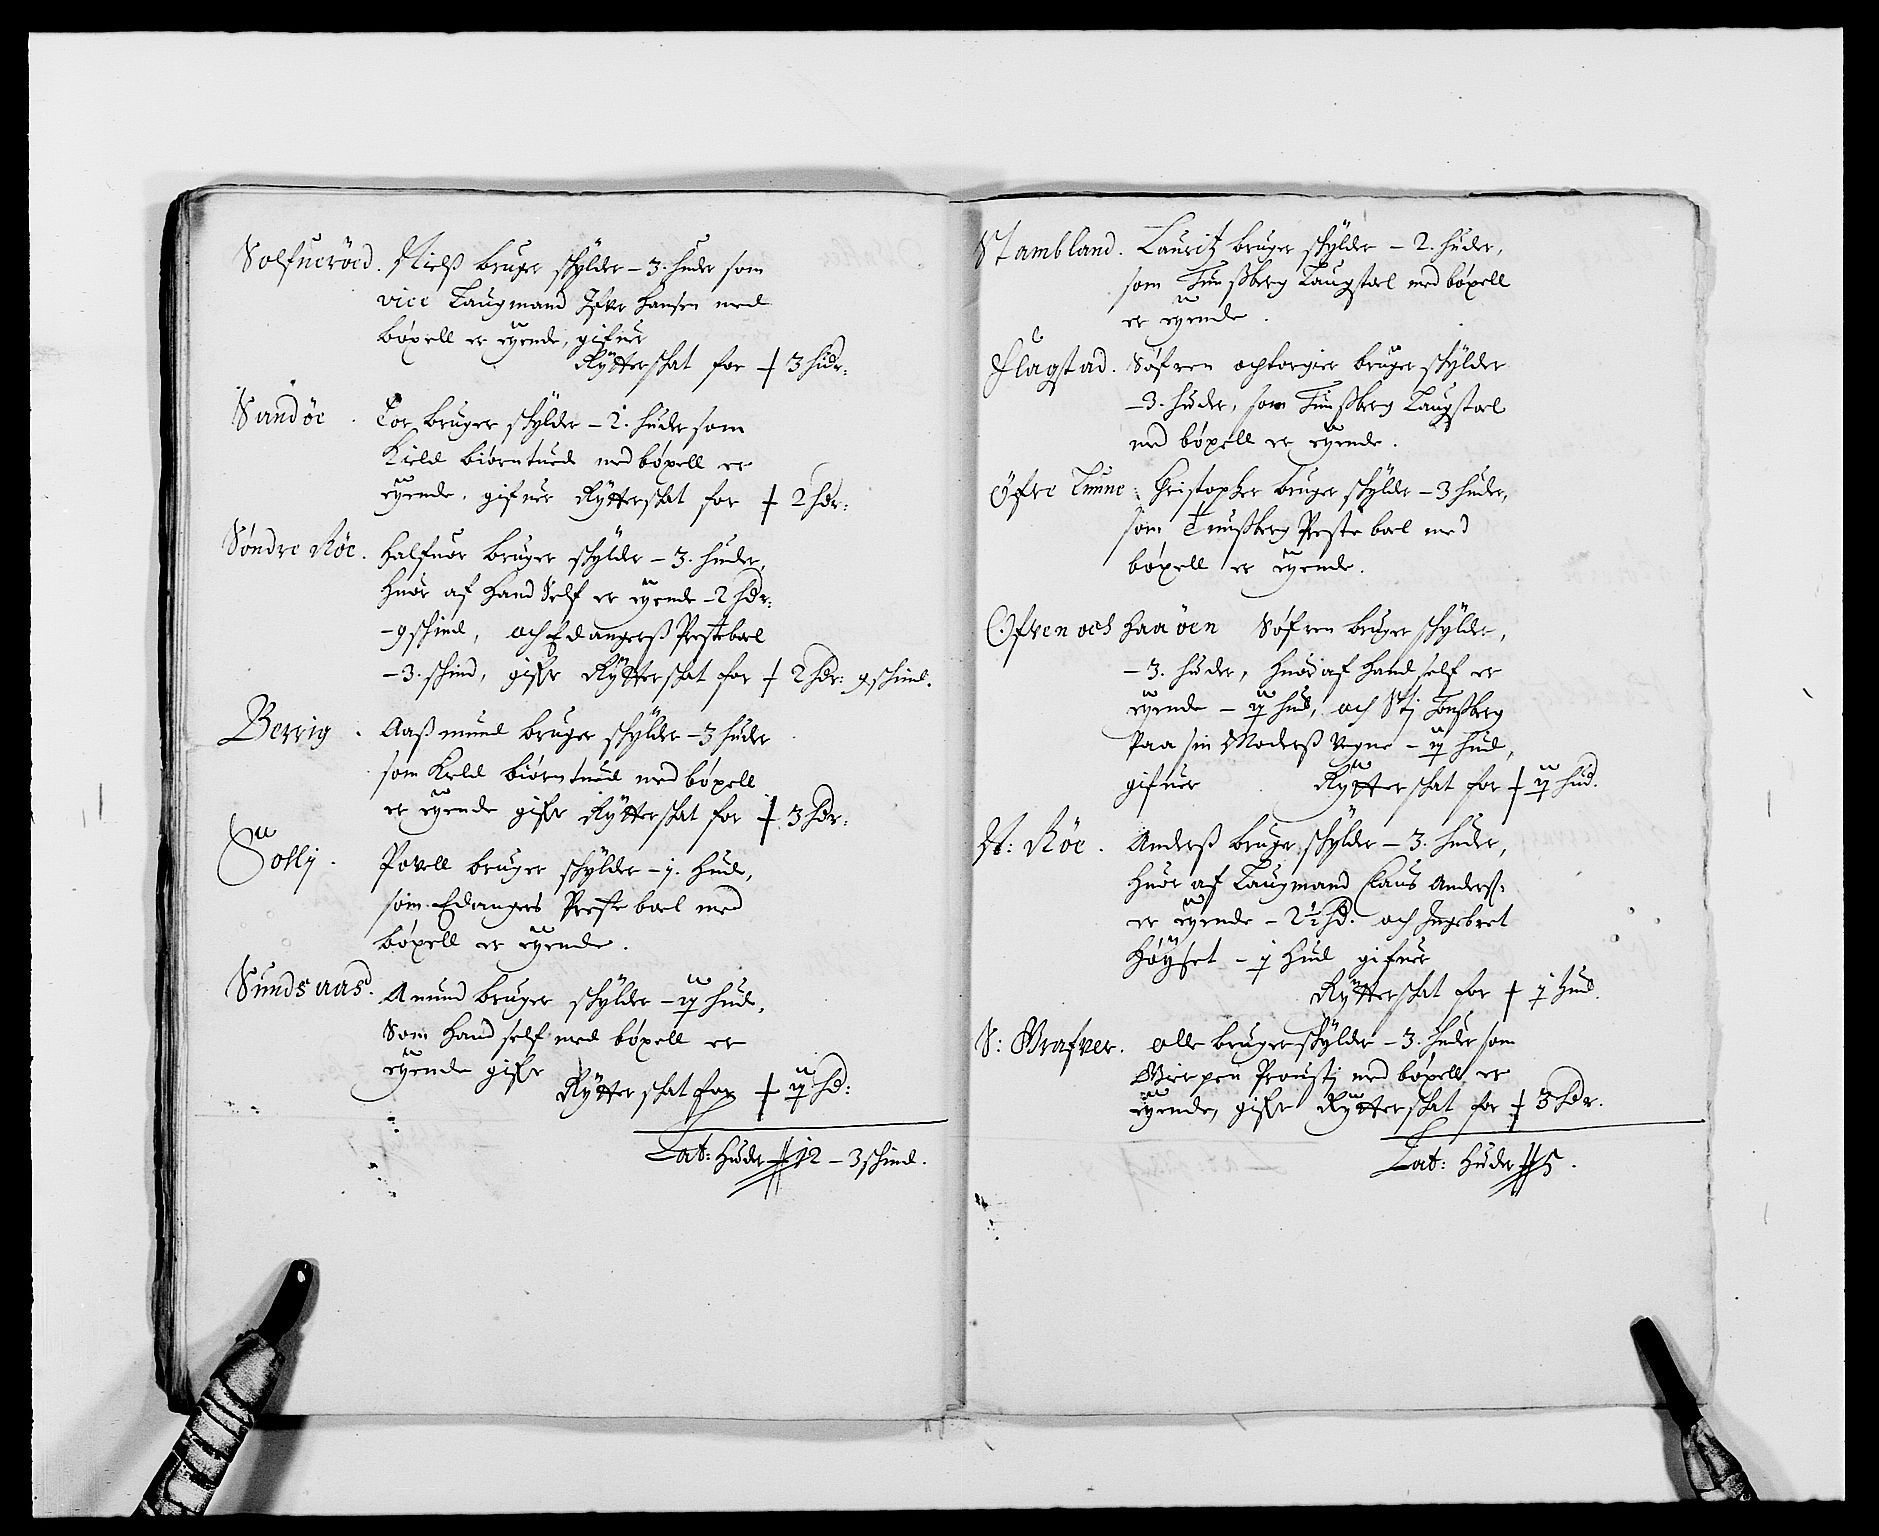 Solfueröed. Nielß bruger skylder – 3. huder som
vice Laugmand Ifver Hansen med
böxell er eyende, gifuer
Rytterskat for ⸸ 3 hudr:
Sandöe. Tor bruger skylder – 2. huder som
Kield biörntued med böxell er
eyende. gifuer Rytterskat for ⸸ 2 hdr:
Söndre Röe. Halfuor bruger skylder – 3. huder,
huor af hand Self er eyende – 2 hdr:
– 9 skind, och Edangerß Presteboel
– 3. skind, gifvr Rytterskat for ⸸ 2 hdr: 9 skind.
Berrig. Aaßmund bruger skylder – 3 huder
som Kield biörntued med böxell
er eyende gifvr Rytterskat for ⸸ 3 hdr:
Solli. Povell bruger skylder – j. hude,
som Edangers Preste boel med
böxell er eyende.
Sundsaas. Amund bruger skylder – ij hude,
Som hand self med böxell er
eyende gifvr
Rytterskat for ⸸ ij hd:
Lat: huder 12 – 3 skind.
Stambland. Lauritz bruger skylder – 2. huder,
som Tunßberg Laugstoel med böxell
er eyende.
Flagstad. Söfren och torgier bruger skylder
– 3. huder, som Tunßberg Laugstoel
med böxell er eyende.
Öfre Linne: Christopher bruger skylder – 3 huder,
som Tunßberg Preste boel med
böxell er eyende.
Ofven och haaöen Söfren bruger skylder,
– 3. huder, huoraf hand self er
eyende – ij hud, och Stj Tonßberg
Paa sin Moderß vegne – ij hud,
gifuer Rytterskat for ⸸ ij hud.
N: Röe. Anderß bruger skylder – 3. huder,
huor af Laugmand Claus Anderß:
er eyende – 2½ hd. och Ingebret
Höyset – j hud gifuer
Rytterskat for ⸸ j hud.
S: Grafver. olle bruger skylder – 3. huder som
Gierpen Proustj med böxell er
eyende, gifvr Rytterskat for ⸸ 3 hdr.
Lat: huder 5.